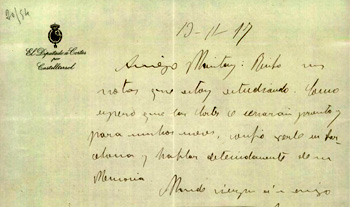 El Diputado á Cortes
por
Castelltersol
Amigo Muntany: Recibo sus
notas que estoy estudiando. Como
espero que las Cortes se cerrarán pronto y
para muchos meses, confio verle en Bar
celona y hablar detenidamente de su
Memoria
Mande siempre á su amigo